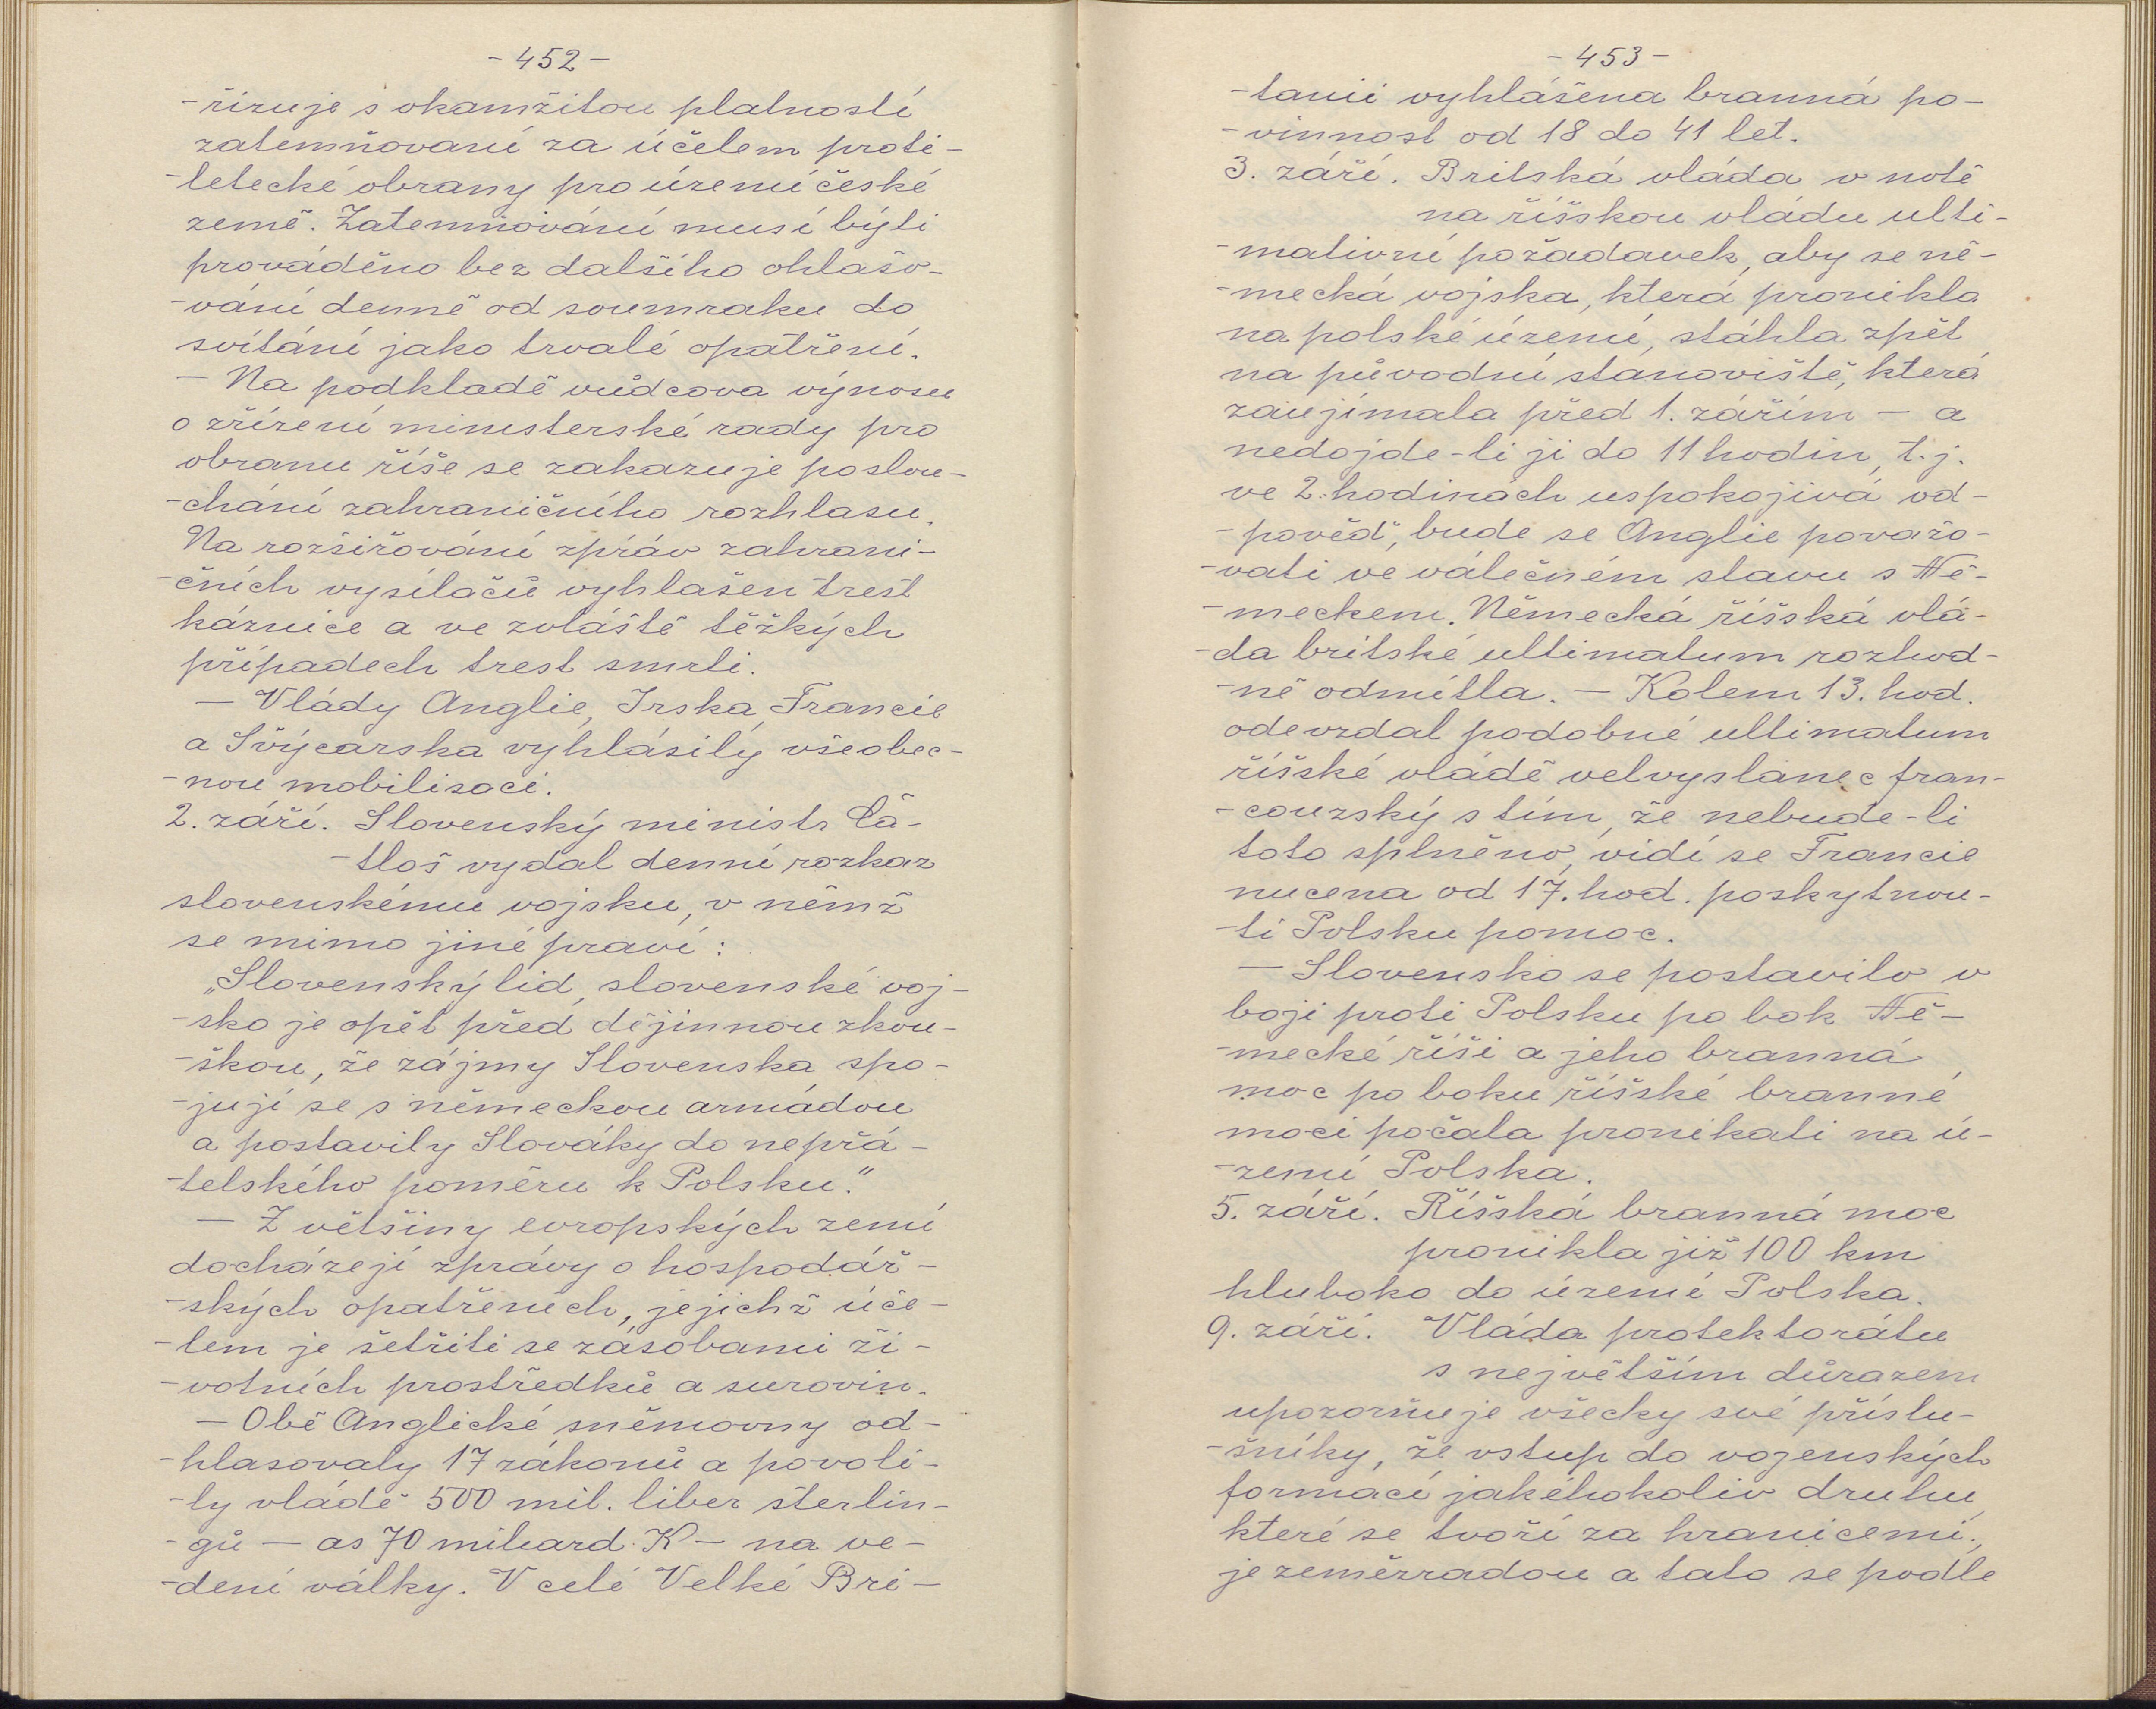 - 452 -
- řizuje s okamžitou platností
zatemňovaní za účelem proti-
- letecké obrany pro území české
země. Zatemňování musí býti
prováděno bez dalšího ohlašo-
- vání denně od soumraku do
svítání jako trvalé opatření.
— Na podkladě vůdcova výnosu
o zřízení ministerské rady pro
obranu říše se zakazuje poslou-
- chání zahraničního rozhlasu.
Na rozšiřování zpráv zahrani-
- čních vysílačů vyhlašen trest
káznice a ve zvláště těžkých
případech trest smrti.
— Vlády Anglie, Irska, Francie
a Švýcarska vyhlásily všeobec-
- nou mobilisaci.
2. září. Slovenský ministr Čá-
- tloš vydal denní rozkaz
slovenskému vojsku, v němž
se mimo jiné praví:
„Slovenský lid, slovenské voj-
- sko je opět před dějinnou zkou-
- škou, že zájmy Slovenska spo-
- jují se s německou armádou
a postavily Slováky do nepřá-
- telského poměru k Polsku."
— Z většiny evropských zemí
docházejí zprávy o hospodář-
- ských opatřeních, jejichž úče-
- lem je šetřiti se zásobami ži-
- votních prostředků a surovin.
— Obě Anglické sněmovny od-
- hlasovaly 17 zákonů a povoli-
- ly vládě 500 mil. liber šterlin-
- gů — as 70 miliard K — na ve-
- dení války. V celé Velké Bri-
- 453 -
- tanii vyhlášena branná po-
- vinnost od 18 do 41 let.
3. září. Britská vláda v notě
na říšskou vládu ulti-
- mativní požadavek, aby se ně-
- mecká vojska, která pronikla
na polské území, stáhla zpět
na původní stanoviště, která
zaujímala před 1. zářím — a
nedojde-li ji do 11 hodin, t. j.
ve 2. hodinách uspokojivá od-
- pověď, bude se Anglie považo-
- vati ve válečném stavu s Ně-
- meckem. Německá říšská vlá-
- da britské ultimatum rozhod-
- ně odmítla. — Kolem 13. hod.
odevzdal podobné ultimatum
říšské vládě velvyslanec fran-
- couzský s tím, že nebude-li
toto splněno, vidí se Francie
nucena od 17. hod. poskytnou-
- ti Polsku pomoc.
— Slovensko se postavilo v
boji proti Polsku po bok Ně-
- mecké říši a jeho branná
moc po boku říšské branné
moci počala pronikati na ú-
- zemí Polska.
5. září. Říšská branná moc
pronikla již 100 km
hluboko do území Polska.
9. září. Vláda protektorátu
s největším důrazem
upozorňuje všecky své příslu-
- šníky, že vstup do vojenských
formací jakéhokoliv druhu,
které se tvoří za hranicemi,
je zeměrradou a tato se podle